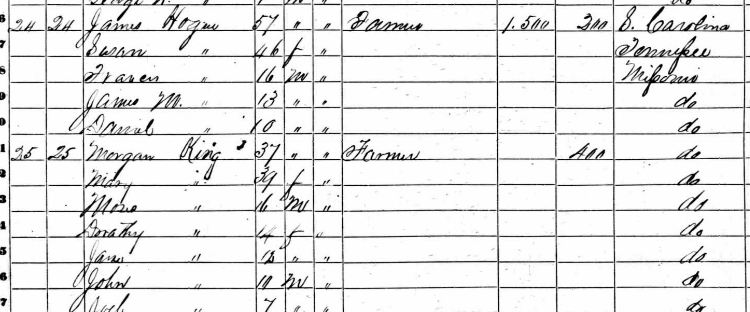 do
24 24 James Hogue 57 " " Farmer 1.500 300 S. Carolina
Susan " 46 f " Tennessee
Francis " 16 m " Missouri
James M. " 13 " " do
Daniel " 10 " " do
25 25 Morgan King 37 " " Farmer 400 do
Mary " 39 f " do
" 16 M " do
Dorathy " 14 f " do
" " " do
John " 10 M " do
" 7 " " do